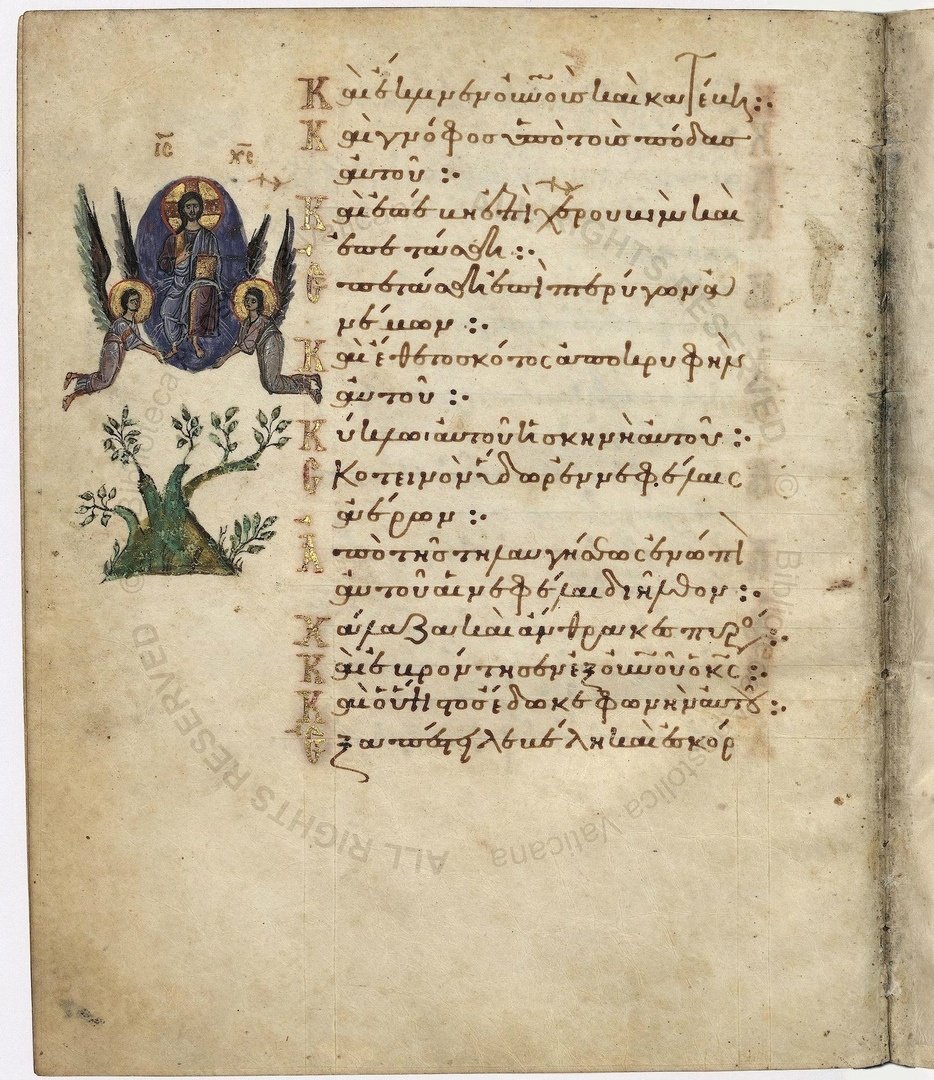 ΙC ΧC
Καὶ ἔκλινεν οὐνοὺς καὶ κατέβη :·
Καὶ γνόφος ὑπὸ τοὺς πόδας
αὐτοῦ :·
Καὶ ἐπέβη ἐπὶ χερουβὶμ καὶ
ἐπετάσθη :·
Ἐπετάσθη ἐπὶ πτερύγων ἀ
νέμων :·
Καὶ ἔθετο σκότος ἀποκρυφὴν
αὐτοῦ :·
Κύκλω αὐτοῦ ἡ σκηνὴ αὐτοῦ :·
Cκοτεινὸν ὕδωρ ἐν νεφέλαις
ἀέρων :·
Ἀπὸ τῆς τηλαυγήσεως ἐνώπι
αὐτοῦ αἱ νεφέλαι διῆλθον :·
Χάλαζα καὶ ἄνθρακες πυρός :·
Καὶ ἐβρόντησεν ἐξ οὐνοῦ ὁ κς :·
Καὶ ὁ ὕψιστος ἔδωκε φωνὴν αὐτοῦ :·
Ἐξαπέστειλε βέλη καὶ ἐσκόρ
ALL RIGHTS RESERVED
© Biblioteca Apostolica Vaticana